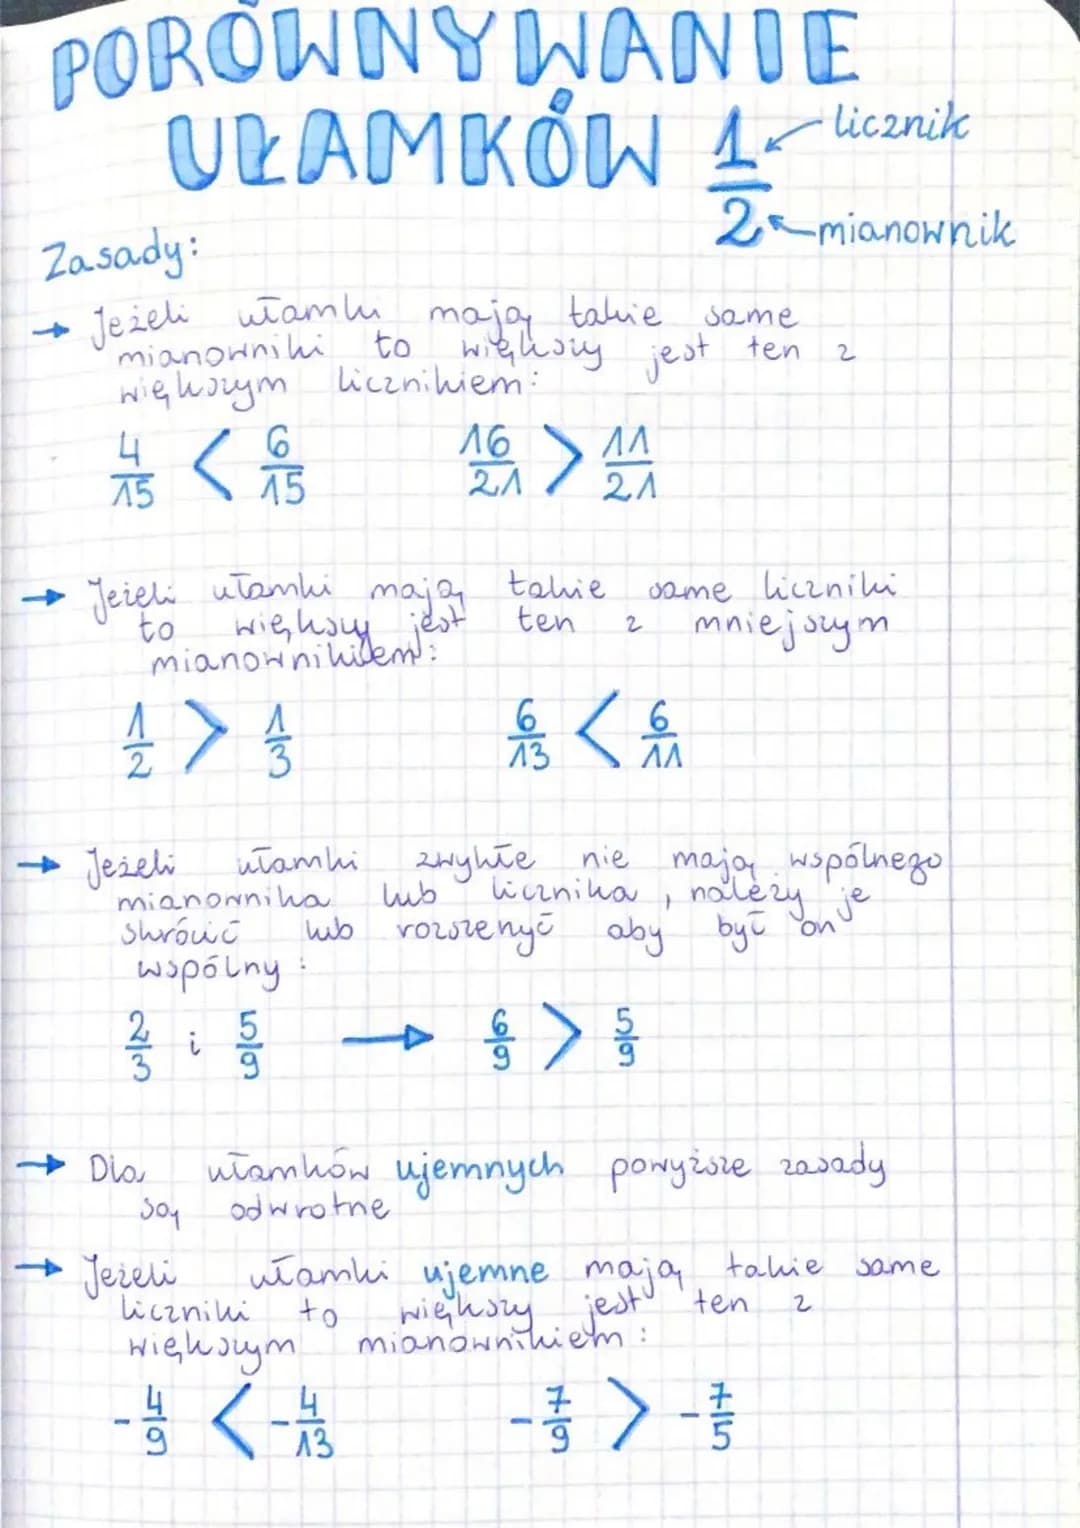 PORÓWNYWANIE
UŁAMKÓW 1/2
licznik
mianownik
Zasady:
→ Jeżeli ułamki mają takie same
mianowniki to większy jest ten z
większym licznikiem:
4/15 < 6/15 16/21 > 11/21
→ Jeżeli ułamki mają takie same liczniki
to większy jest ten z mniejszym
mianownikiem:
1/2 > 1/3 6/13 < 6/11
→ Jeżeli ułamki zwykłe nie mają wspólnego
mianownika lub licznika, należy je
skrócić lub rozszerzyć aby był on
wspólny:
2/3 i 5/9 → 6/9 > 5/9
→ Dla ułamków ujemnych powyższe zasady
są odwrotne
→ Jeżeli ułamki ujemne mają takie same
liczniki to większy jest ten z
większym mianownikiem:
-4/9 < -4/13 -7/9 > -7/5